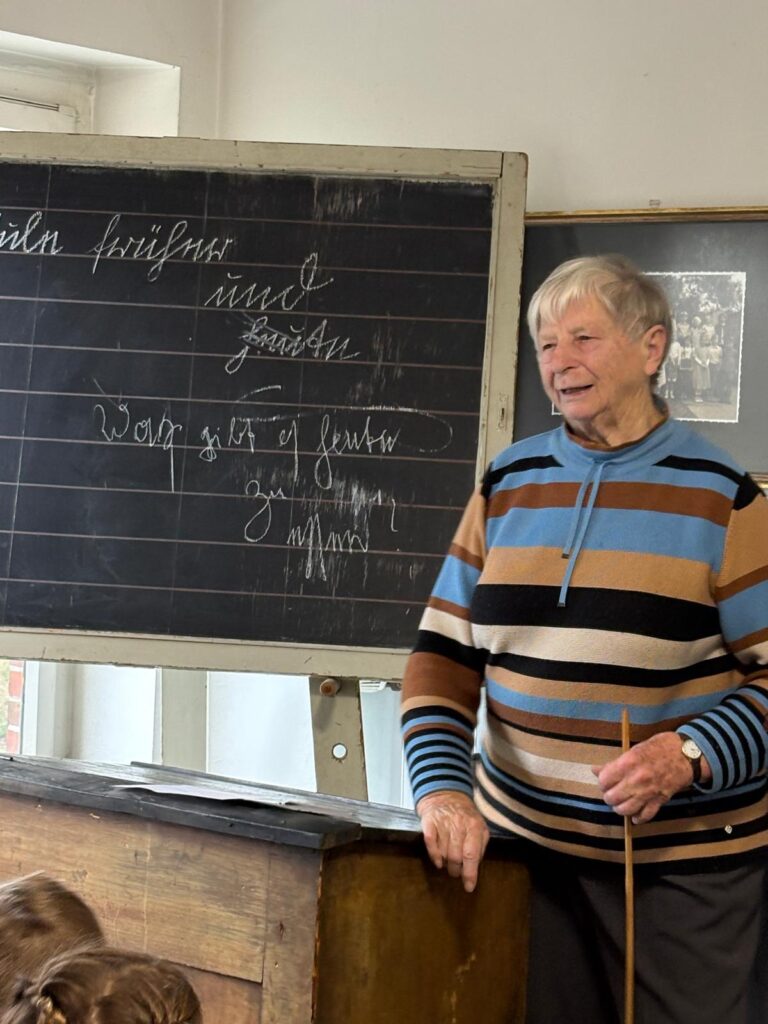 ule früher
und
heute
Was gibt es heute
zu
essen?